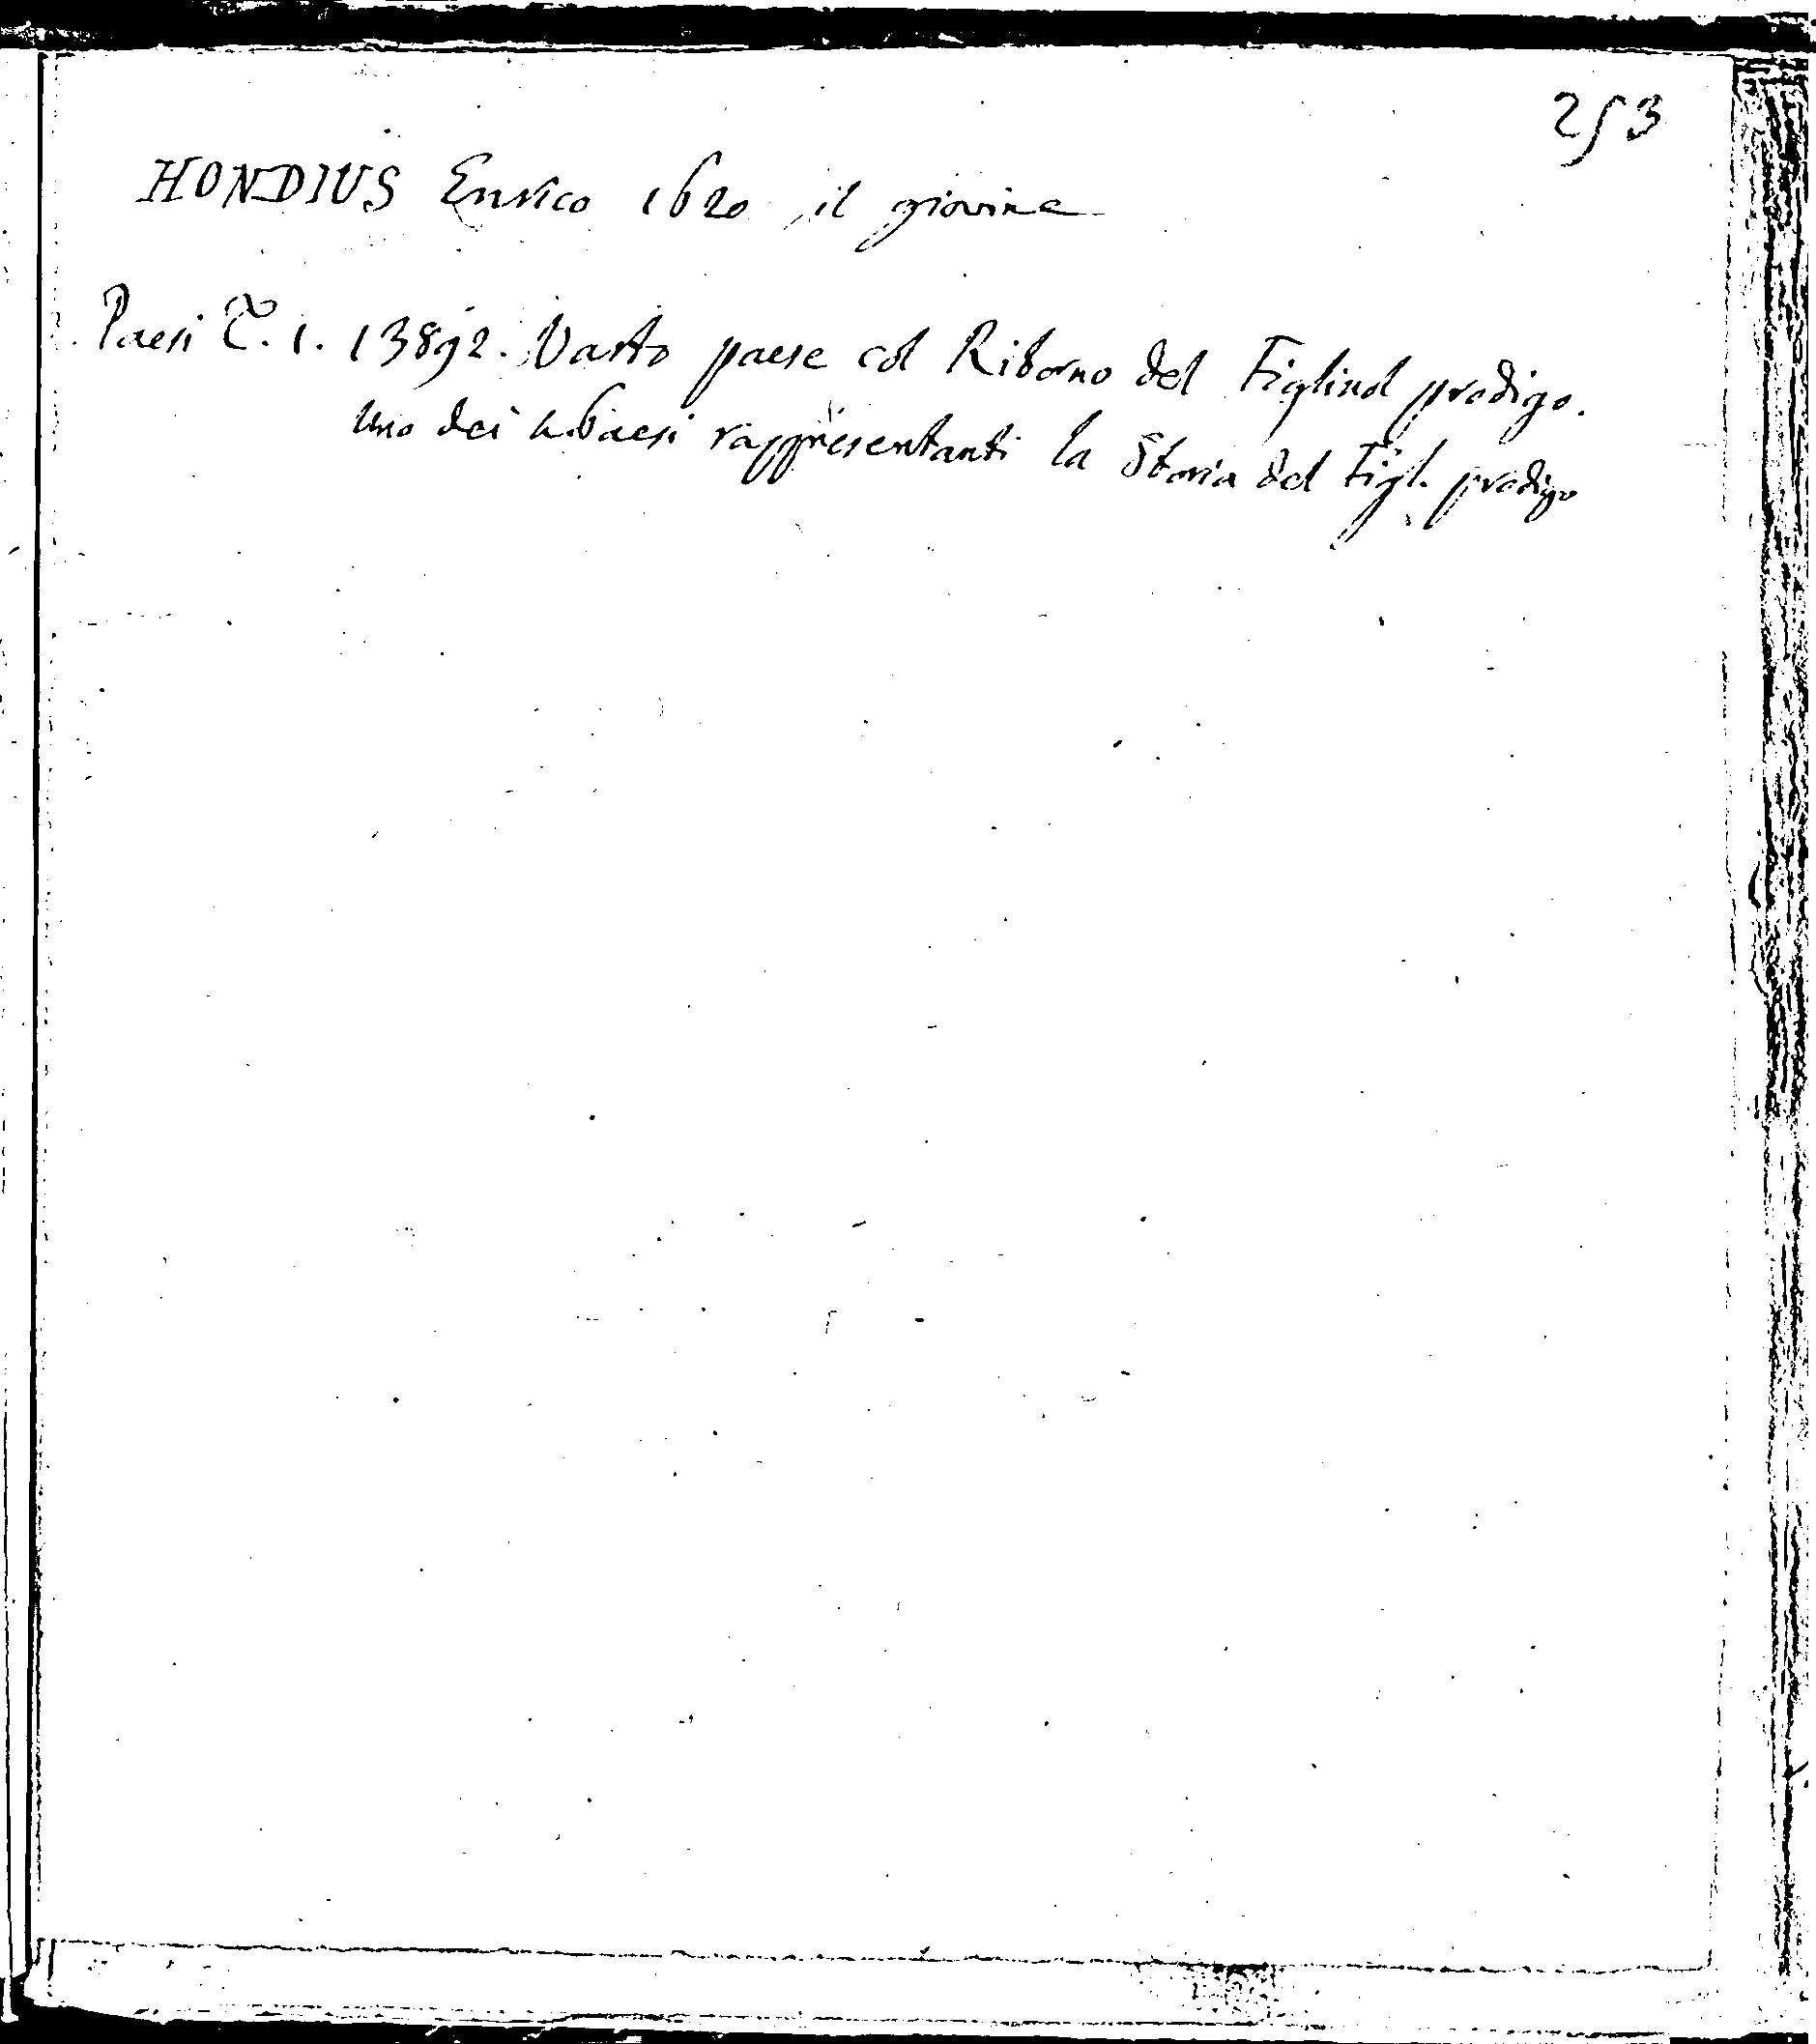 253
HONDIUS Enrico 1620 il giovine
Paesi T. 1. 13892. Vasto paese col Ritorno del Figliuol prodigo.
Uno dei 4. Paesi rappresentanti la Storia del Figl. prodigo